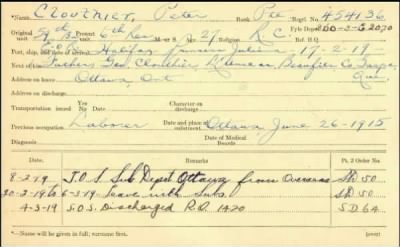 *Name Clouthier, Peter Rank Pte Regtl. No. 454136
Original unit Present unit 6th Res M. or S. Age 27 Religion R C. Fyle Depot Ref. H.Q.
Port, ship, and date of Halifax 17-2-19
Next of kin Fathers Geo, Clouthier Beauce Co
Address on leave Ottawa, Ont Que.
Address on discharge
Transportation issued Yes No Character on discharge
Previous occupation Laborer Date and place of substitution Ottawa June 26-1915
Diagnosis Date of Medical Boards
Date. Remarks Pt. 2 Order No.
8-3-19 T.O.S Sub Depot Ottawa from Overseas SD 50
20-2-19 to 6-3-19 Leave with Subs. SD 50
4-3-19 S.O.S Discharged R.O. 1420 SD 64
*—Name will be given in full; surname first. (over)